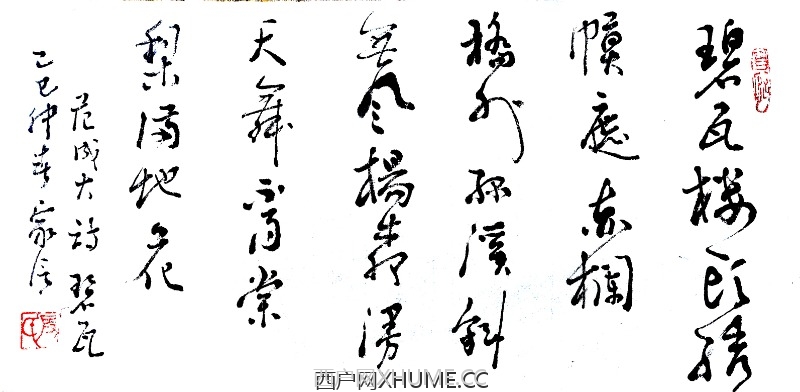 碧瓦楼头绣
幙遮赤欄
橋外綠溪斜
無風楊柳漫
天舞不雨棠
梨满地花
范成大诗 碧瓦
乙巳仲春
西户网XHUME.CC